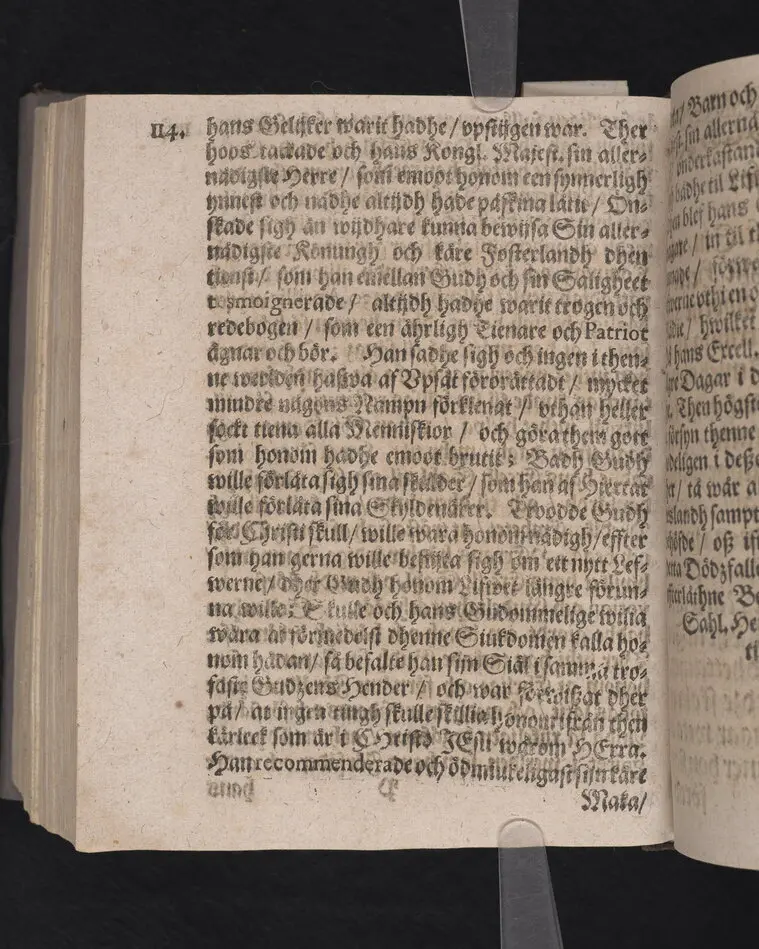 114.
hans Gelijker warit hadhe / vpstijgen war. Ther
hoos tackade och hans Kongl. Majest. sin aller-
nådigste Herre / som emoot honom een synnerligh
ynnest och nådhe altijdh hade påskina låtit / Ön-
skade sigh än wijdhare kunna bewijsa Sin aller-
nådigste Konungh och käre Fosterlandh dhen
tienst / som han emellan Gudh och sin Saligheet
tesmoignerade / altijdh hadhe warit trogen och
redebogen / som een ährligh Tienare och Patriot
ägnar och bör. Han sadhe sigh och ingen i then-
ne werlden hafwa af Vpsåt förorättadt / mycket
mindre någons Nampn förklenat / vthan heller
sockt tiena alla Menniskior / och göra them gott
som honom hadhe emoot brutit; Badh Gudh
wille förlåta sigh sina skulder / som han af Hiertat
wille förlåta sina Skyldenärer. Trodde Gudh
för Christi skull / wille wara honom nådigh / effter
som han gerna wille beflijta sigh om ett nytt Lef-
werne / dher Gudh honom Lifwet längre förun-
na wille: Skulle och hans Gudommelige wilia
wara at förmedelst dhenne Siukdomen kalla ho-
nom hädan / så befalte han sijn Siäl i samma tro-
faste Gudzens Hender / och war förwissat dher
på / at ingen tingh skulle skillia honom ifrån then
kärleek som är i CHristo JEsu warom HErra.
Han recommenderade och ödmiukeligast sijn käre
Maka /
/ Barn och
sin allernå
onderkastan
hadhe til Lif
blef hans
/ in til th
en o
/ hwilket
hans Excell.
Dagar i d
Then högst
försyn thenne
deligen i desse
/ tå war a
landh sampt
/ oss if
Dödzfalle
Be
Sahl. He
ti